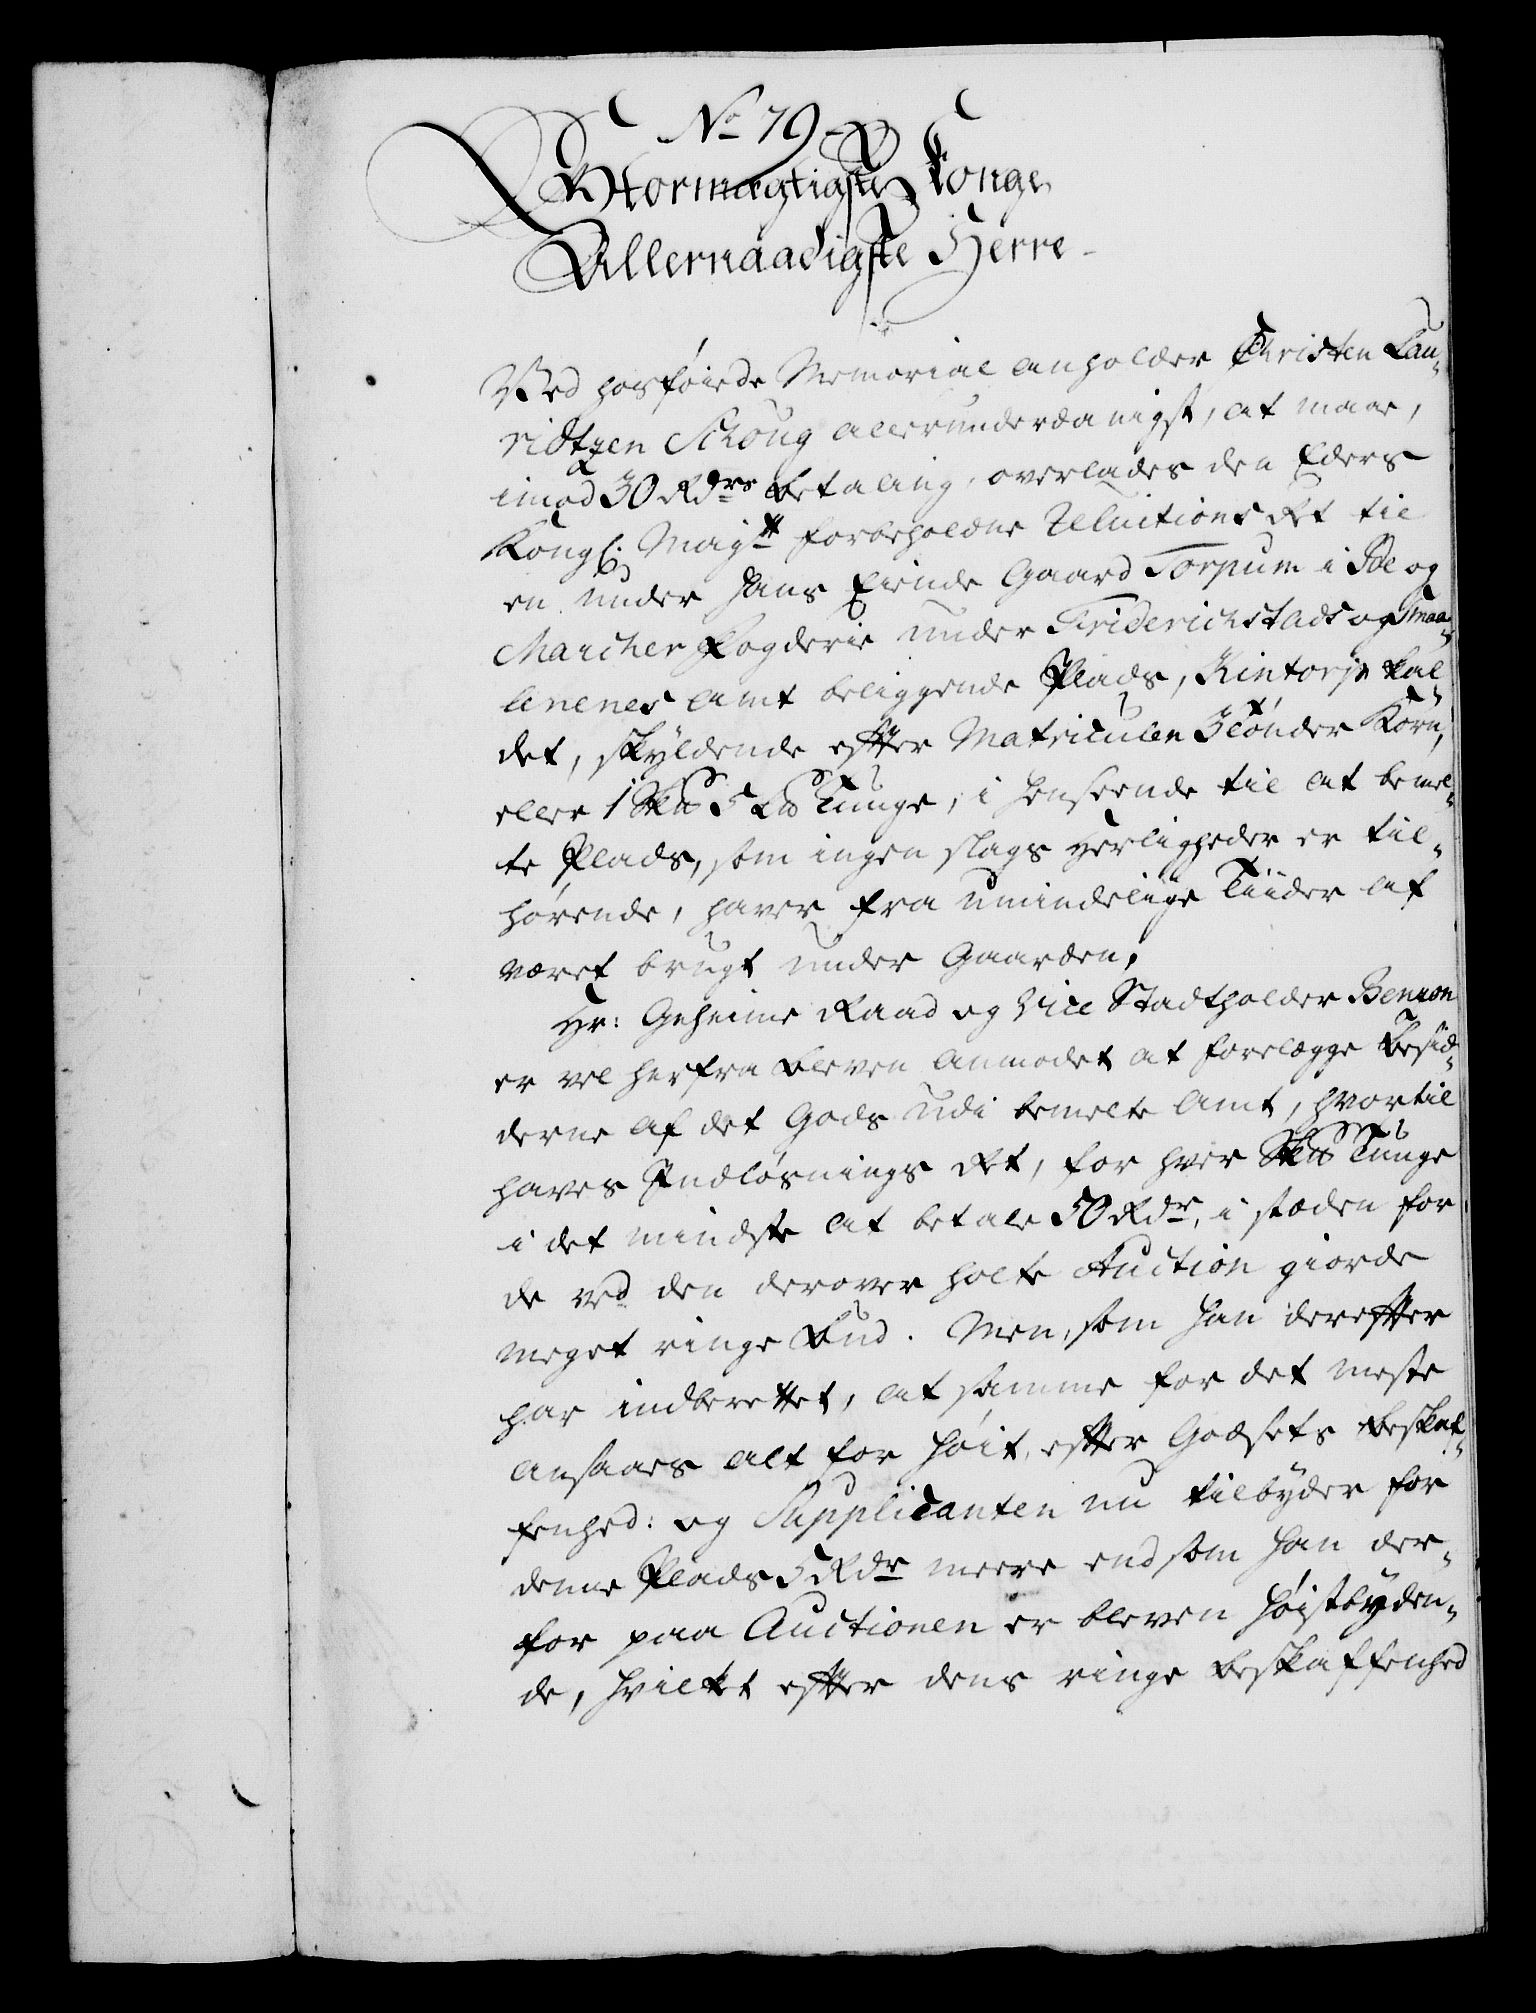 No 79
Stormægtigste Konge
Allernaadigste Herre
Ved hosføiede Memorial anholder Christen Lau-
ridtzen Schoug allerunderdanigst, at maae,
imod 30 Rdrs betaling, overlades den Eders
Kongl: Mayts forbeholdne Reluitions Ret til
en under hans Eiende Gaard Torpum i Ide og
Marcher Fogderie under Friderichstads og Smaa-
lenenes Amt beliggende Plads, kal-
det, skyldende efter Matriculen 3 tønder Korn,
eller 1 Sk℔ 5 L℔ Tunge, i henseende til at bemel-
te Plads, som ingen slags Herligheder er til-
hørende, haver fra umindelige Tiider af
været brugt under Gaarden,
Hr: Geheime Raad og Vice Stadtholder Benzon
er vel herfra bleven anmodet at forelægge Besid-
derne af det Gods udi bemelte Amt, hvortil
haves Indløsnings Ret, for hver Sk℔ Tunge
i det mindste at betale 50 Rdr, i stæden for
de ved den derover holte Auction giorde
meget ringe Bud. Men, som han derefter
har indberettet, at samme for det meste
ansaaes alt for høit, efter Godsets beskaf-
fenhed: og Supplicanten nu tilbyder for
denne Plads 5 Rdr meere end som han der-
for paa Auctionen er bleven høistbyden-
de, hvilket efter dens ringe beskaffenhed